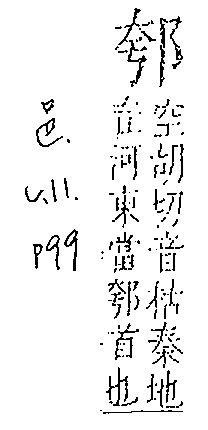 空胡切音枯秦地
在河東當首也
邑.
v.11.
p99